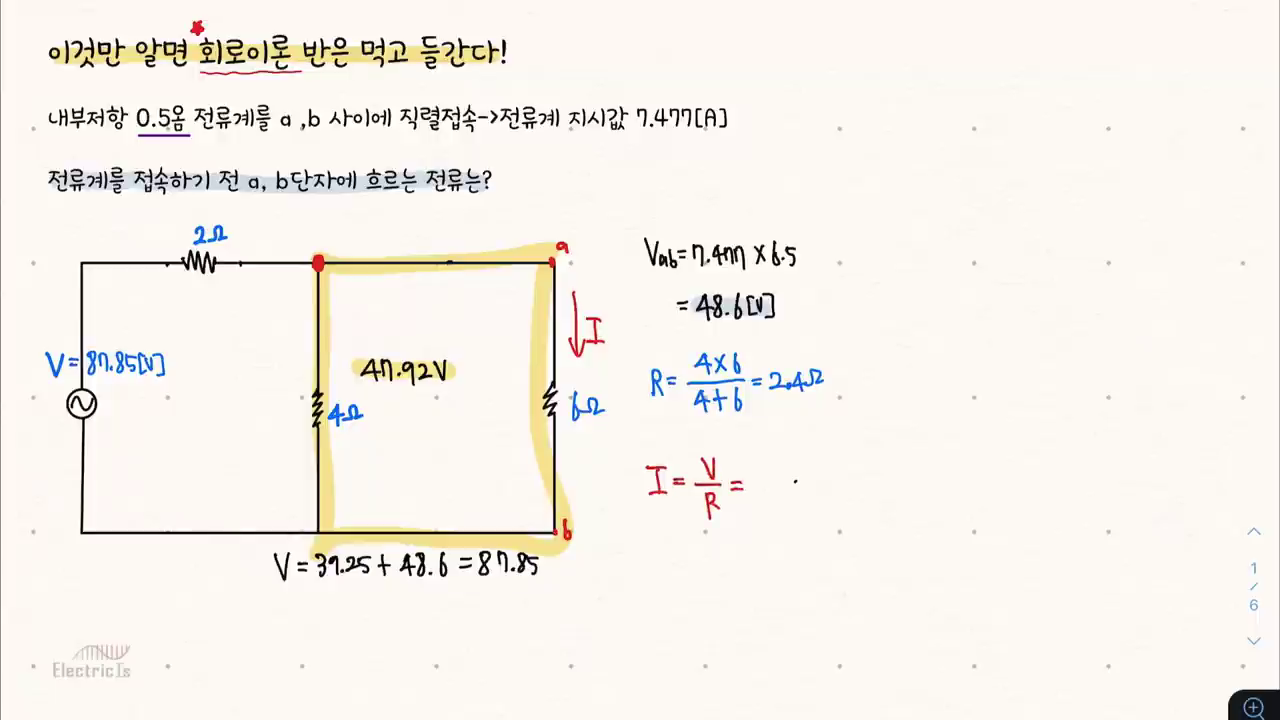 이것만 알면 회로이론 반은 먹고 들간다!
내부저항 0.5옴 전류계를 a ,b 사이에 직렬접속->전류계 지시값 7.477[A]
전류계를 접속하기 전 a, b단자에 흐르는 전류는?
2Ω
a
I
V=87.85[V]
47.92V
4Ω
6Ω
b
V=39.25+48.6=87.85
Vab=7.477×6.5
=48.6[V]
R=4×6/4+6=2.4Ω
I=V/R=
1
/
6
ElectricIs